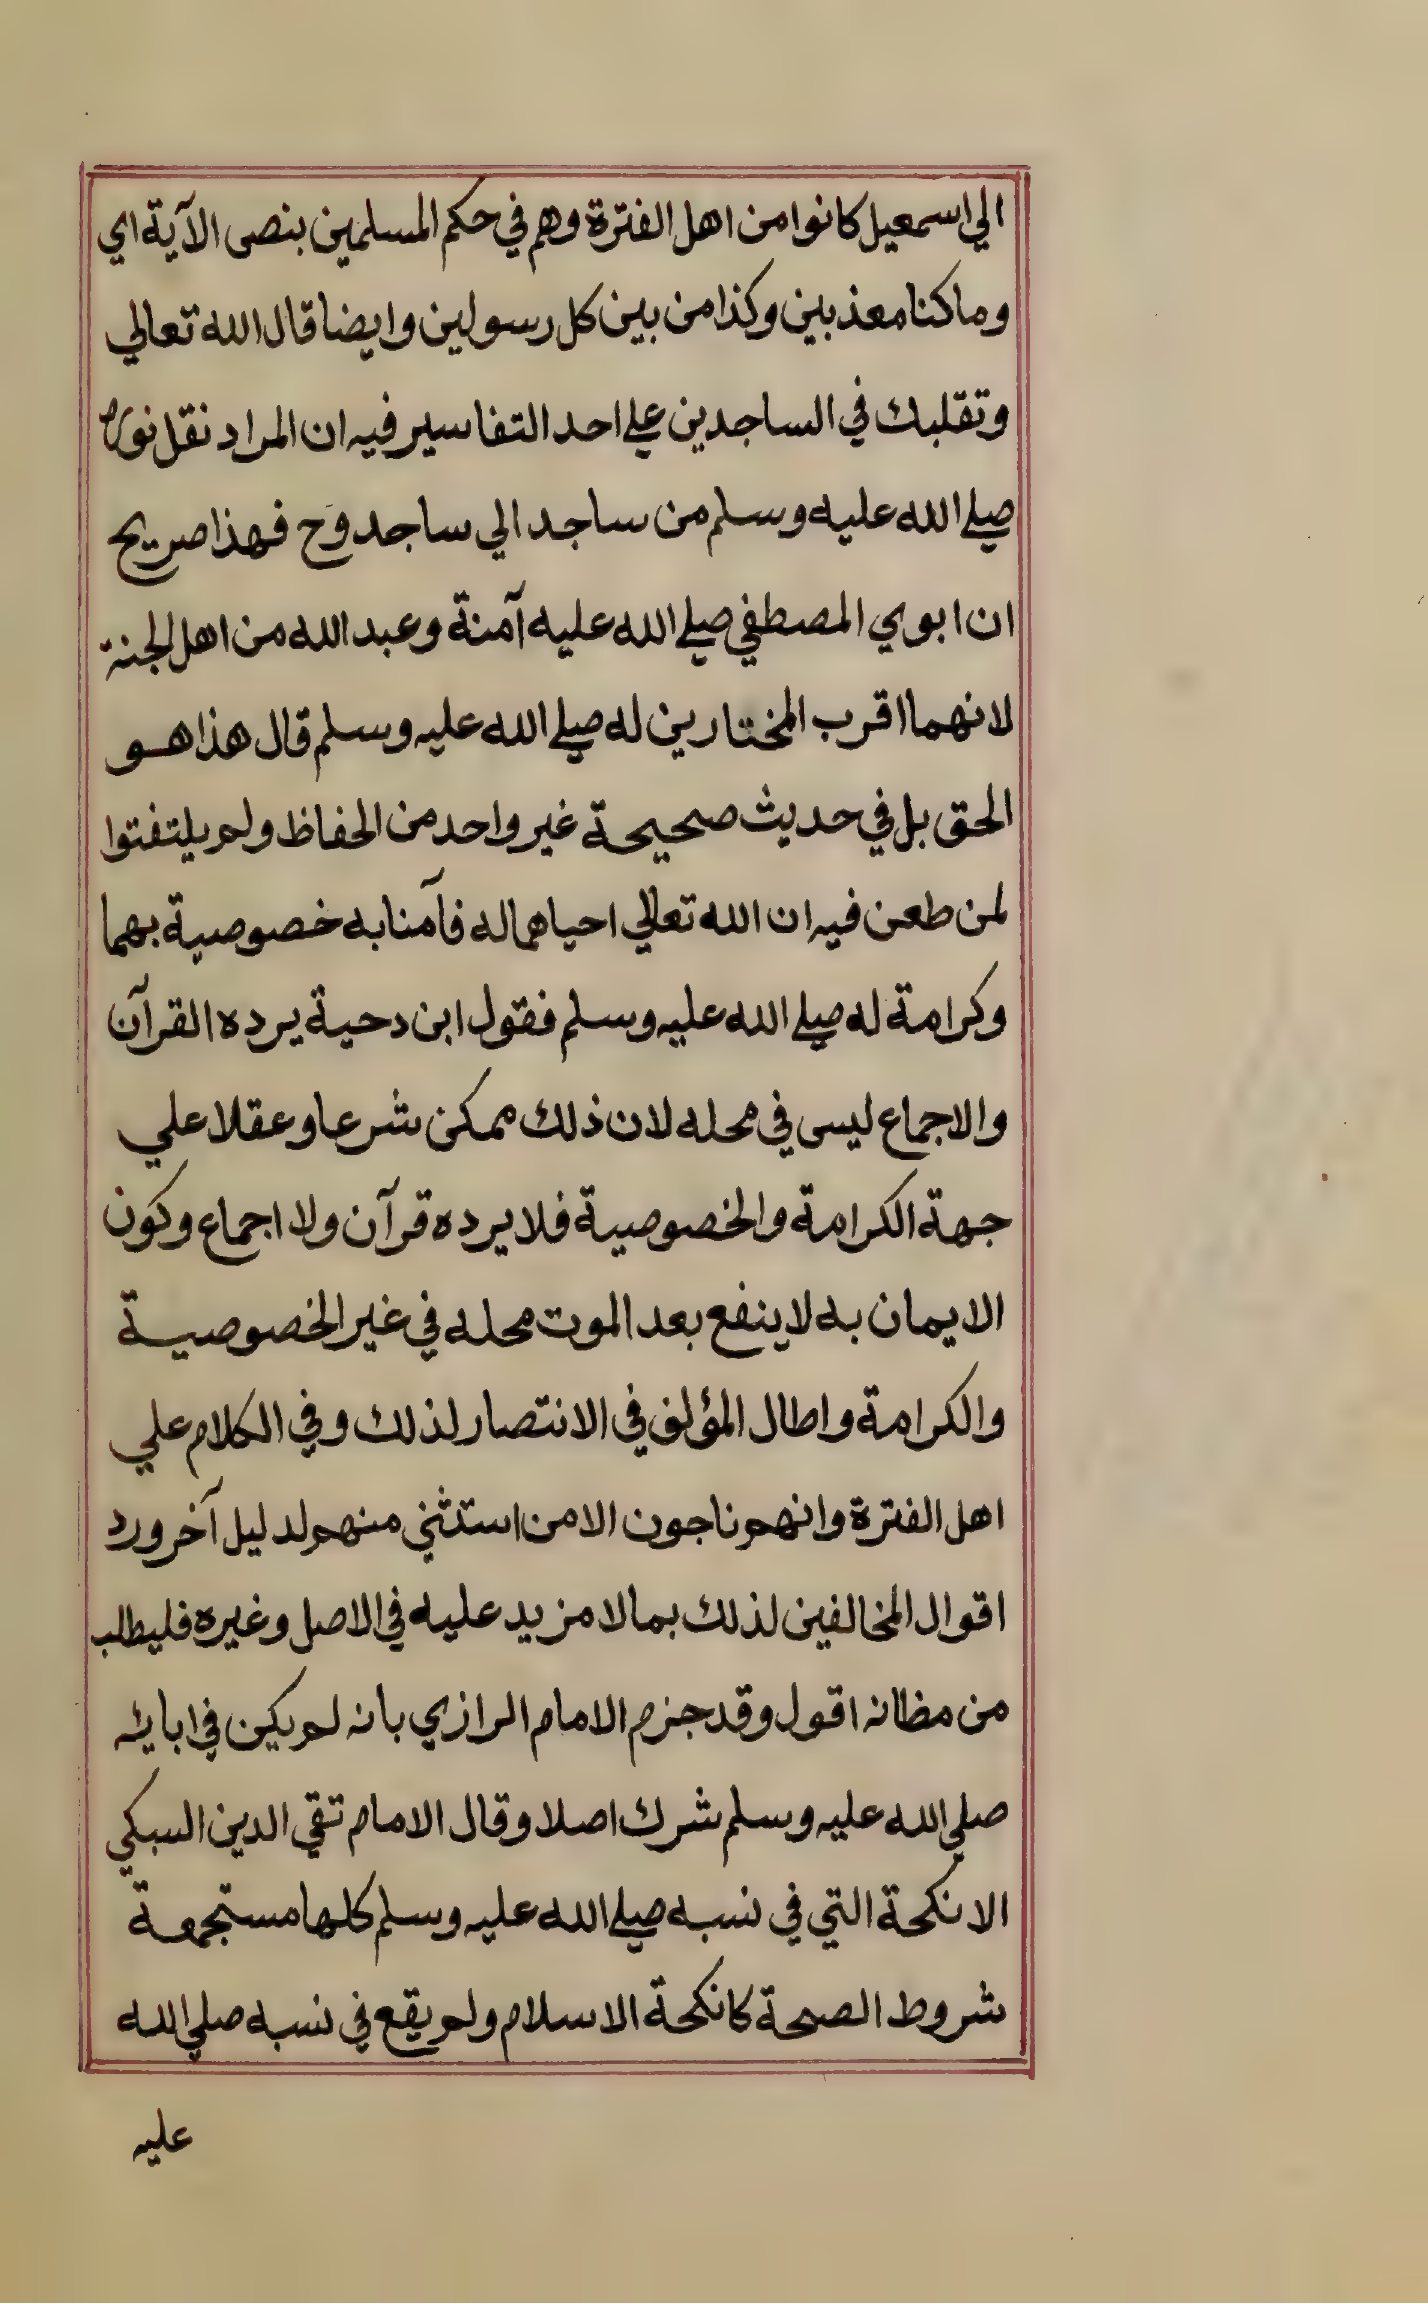 الي اسمعيل كانوا من اهل الفترة وهم في حكم المسلمين بنص الآية اي
وما كنا معذبين وكذا من بين كل رسولين وايضا قال الله تعالي
وتقلبك في الساجدين علي احد التفاسير فيه ان المراد نقل نوره
صلي الله عليه وسلم من ساجد الي ساجد وح فهذا صريح
ان ابوي المصطفي صلي الله عليه آمنة وعبد الله من اهل الجنة
لانهما اقرب المختارين له صلي الله عليه وسلم قال هذا هو
الحق بل في حديث صحيحة غير واحد من الحفاظ ولم يلتفتوا
لمن طعن فيه ان الله تعالي احياهما له فآمنا به خصوصية بهما
وكرامة له صلي الله عليه وسلم فقول ابن دحية يرده القرآن
والاجماع ليس في محله لان ذلك ممكن شرعا وعقلا علي
جهة الكرامة والخصوصية فلا يرده قرآن ولا اجماع وكون
الايمان به لا ينفع بعد الموت محله في غير الخصوصية
والكرامة واطال المؤلف في الانتصار لذلك وفي الكلام علي
اهل الفترة وانهم ناجون الا من استثني منهم لدليل آخر ورد
اقوال المخالفين لذلك بما لا مزيد عليه في الاصل وغيره فليطلب
من مظانه اقول وقد جزم الامام الرازي بانه لم يكن في ابائه
صلي الله عليه وسلم شرك اصلا وقال الامام تقي الدين السبكي
الانكحة التي في نسبه صلي الله عليه وسلم كلها مستجمعة
شروط الصحة كانكحة الاسلام ولم يقع في نسبه صلي الله
عليه